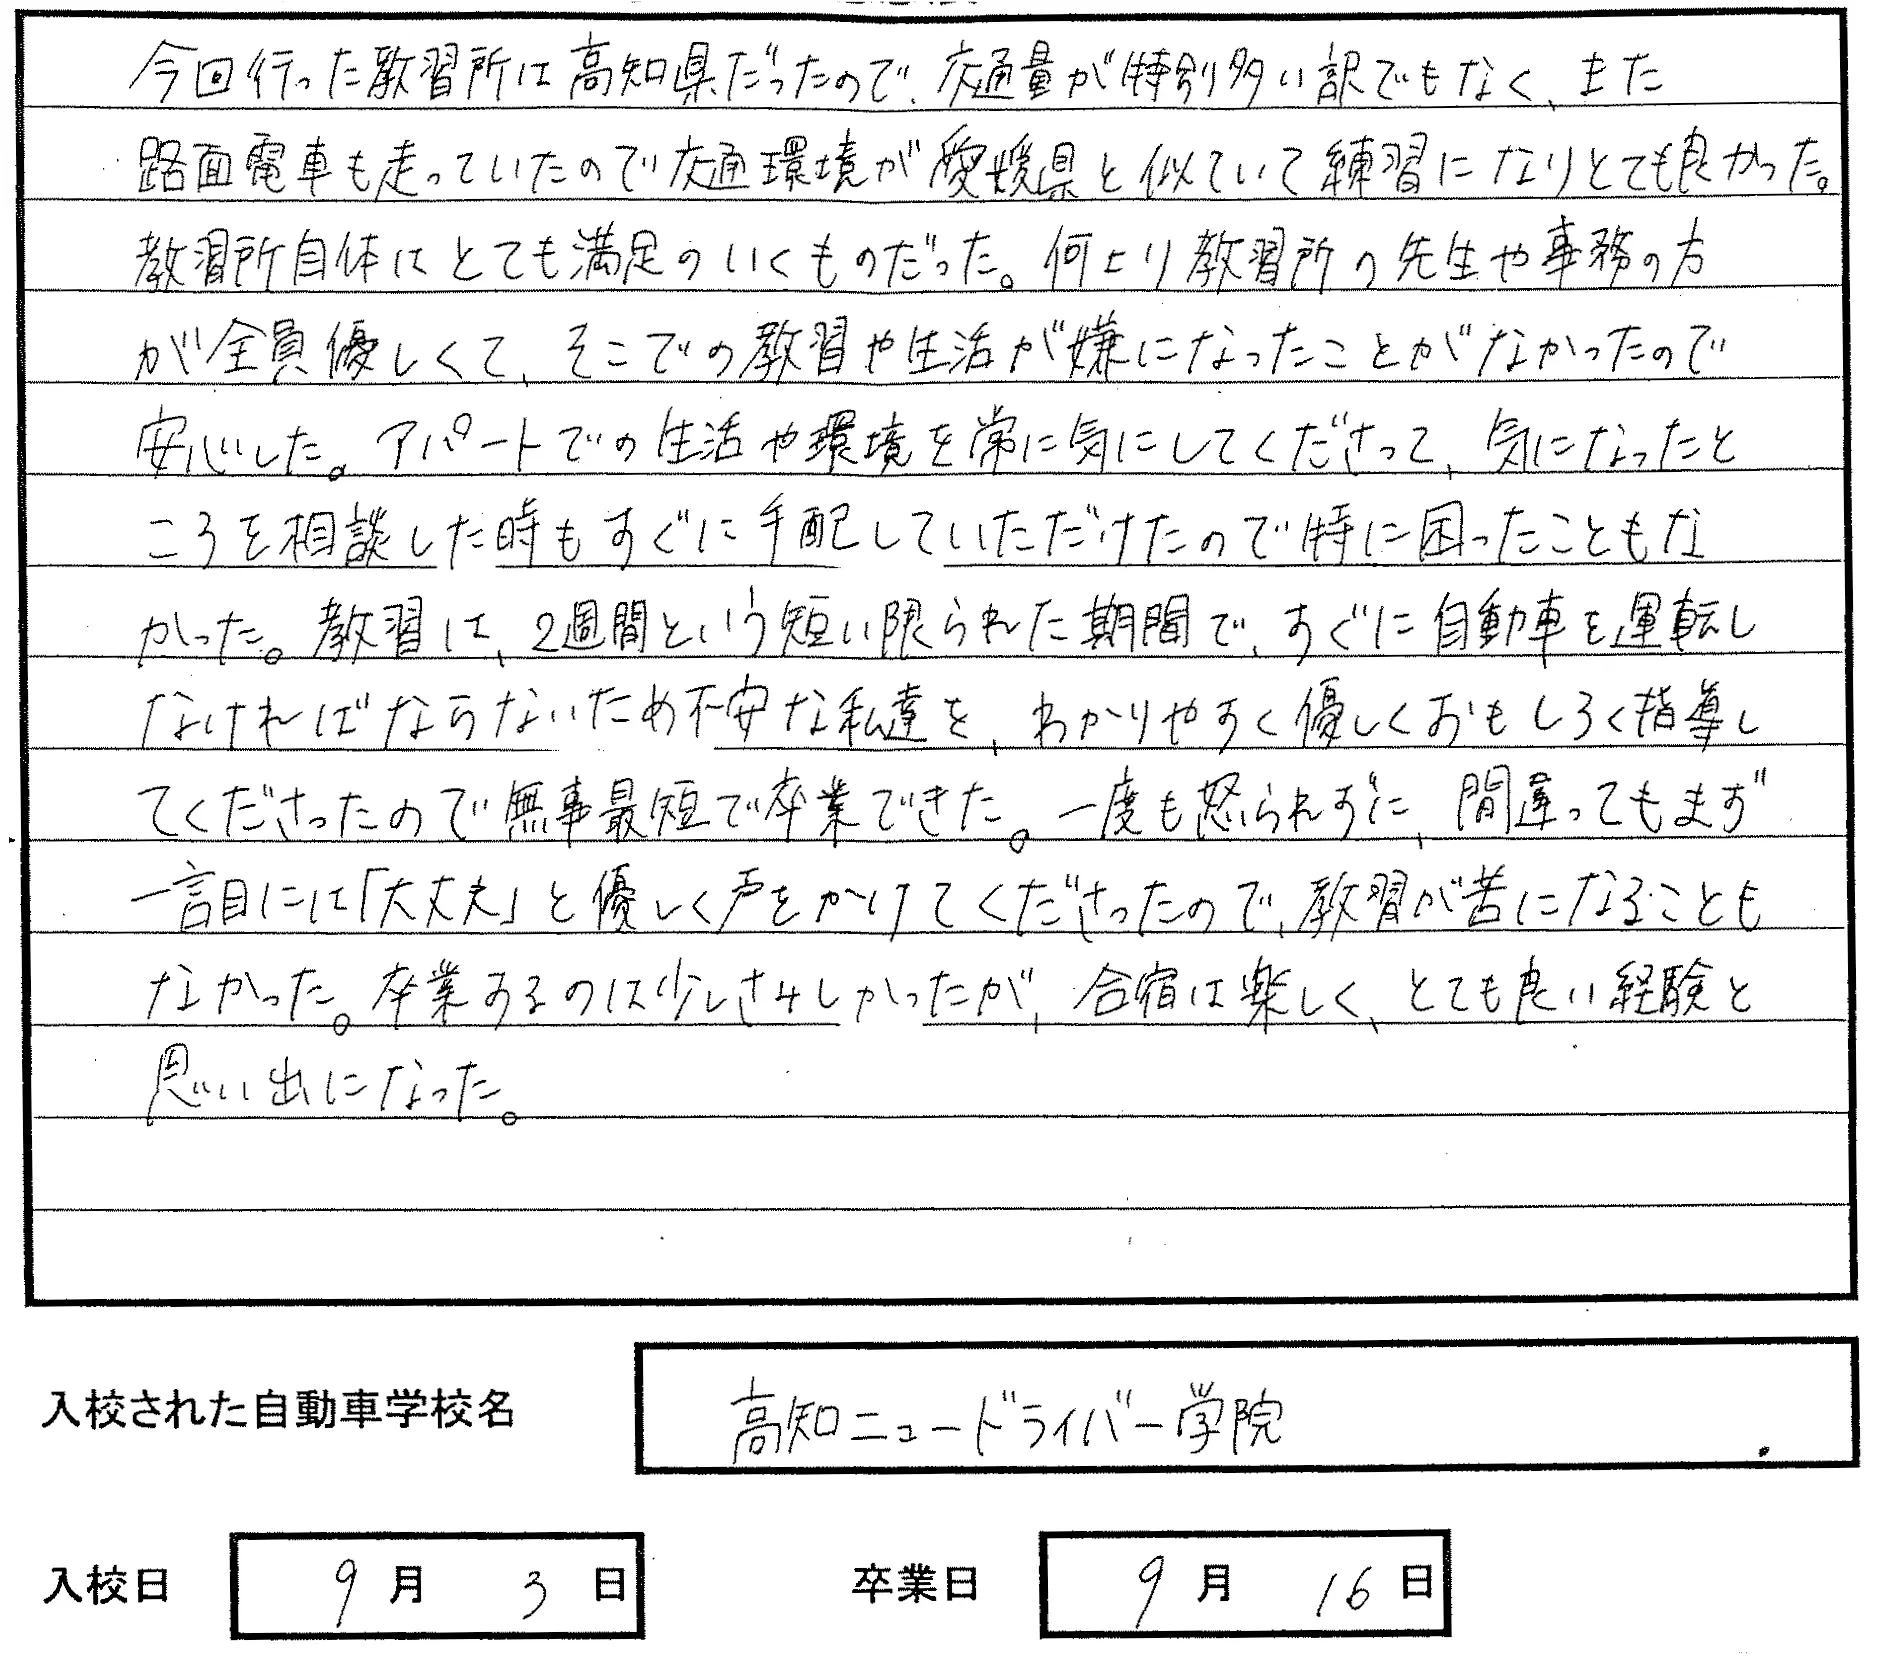 今回行った教習所は高知県だったので、交通量が特別多い訳でもなく、また
路面電車も走っていたので交通環境が愛媛県と似ていて練習になりとても良かった。
教習所自体はとても満足のいくものだった。何より教習所の先生や事務の方
が全員優しくて、そこでの教習や生活が嫌になったことがなかったので
安心した。アパートでの生活や環境を常に気にしてくださって、気になったと
ころを相談した時もすぐに手配していただけたので特に困ったこともな
かった。教習は、2週間という短い限られた期間で、すぐに自動車を運転し
なければならないため不安な私達を、わかりやすく優しくおもしろく指導し
てくださったので無事最短で卒業できた。一度も怒られずに、間違ってもまず
一言目には「大丈夫」と優しく声をかけてくださったので、教習が苦になることも
なかった。卒業するのは少しさみしかったが、合宿は楽しく、とても良い経験と
思い出になった。
入校された自動車学校名 高知ニュードライバー学院
入校日 9月 3日 卒業日 9月 16日